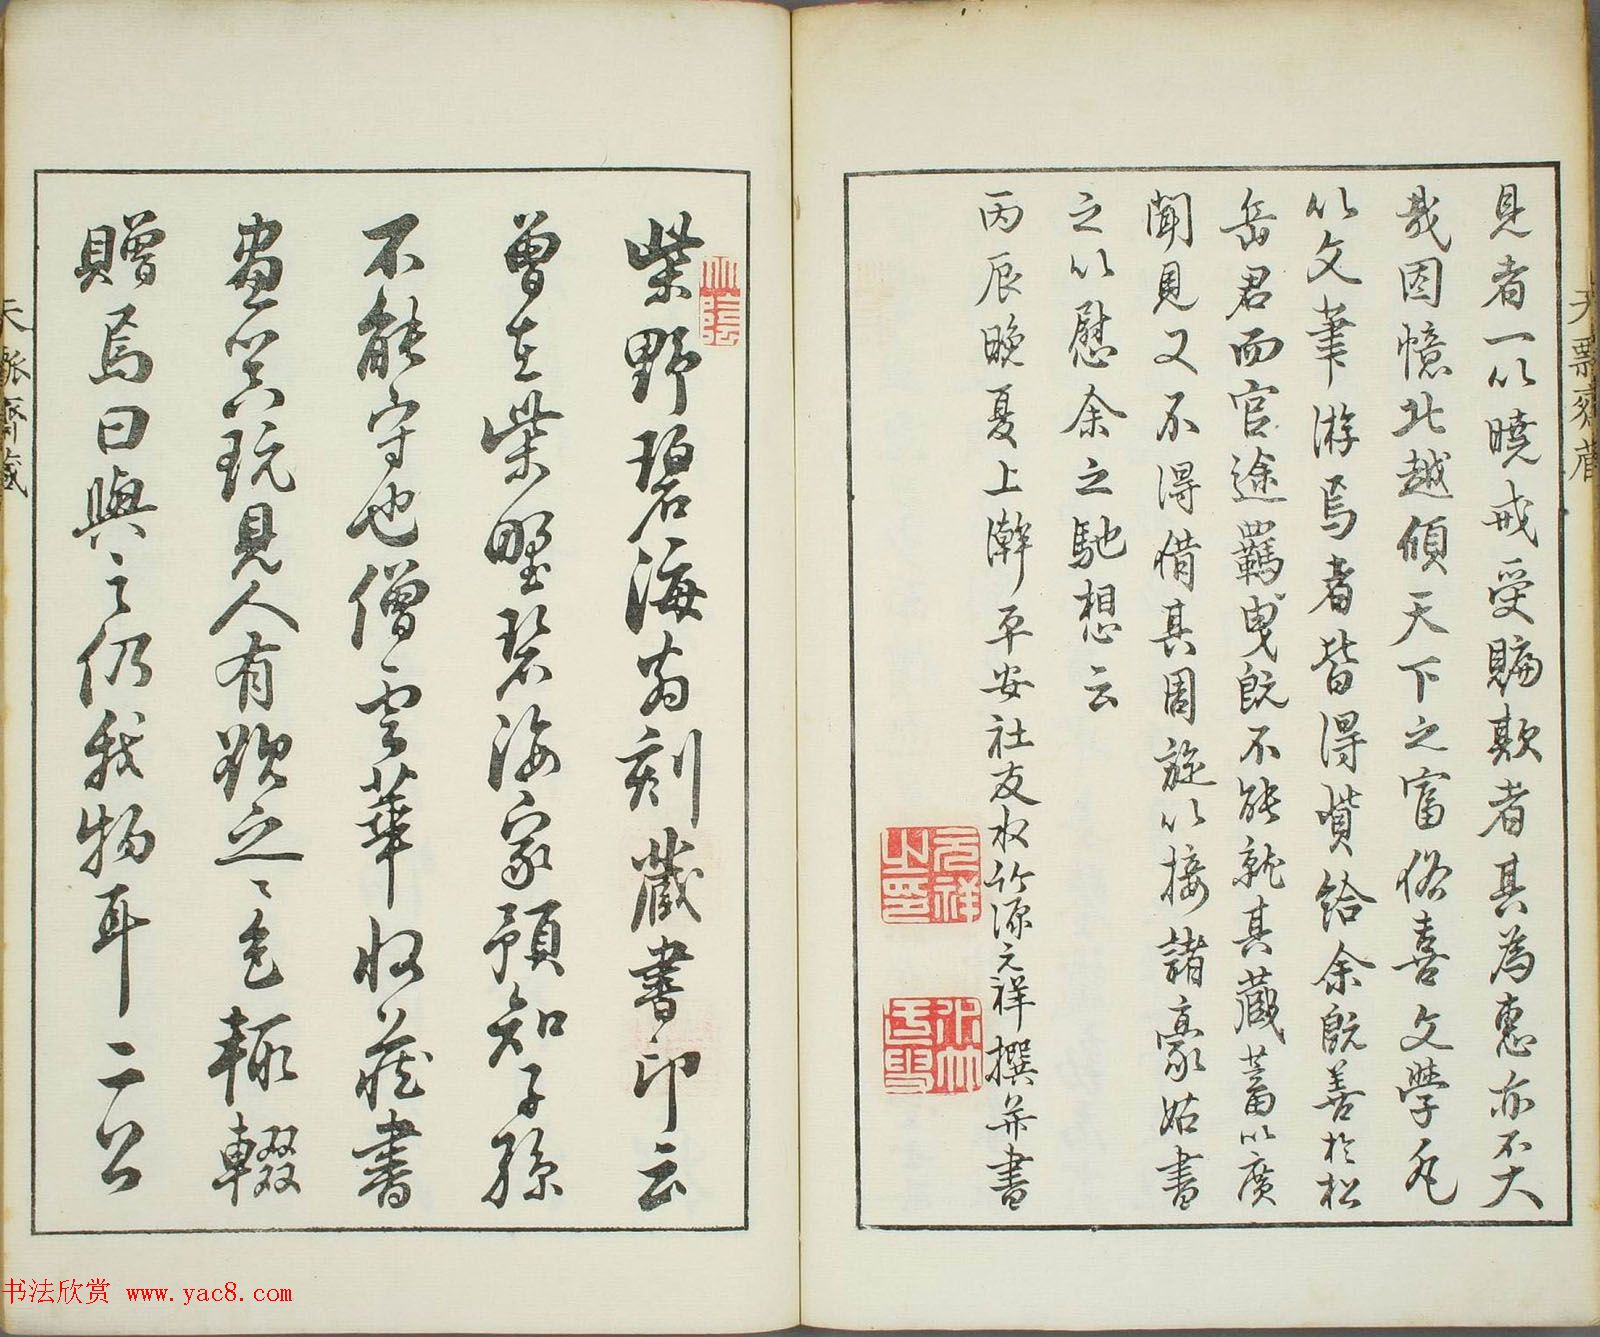 見者一以曉戒受騙欺者其為惠亦不大
哉因憶北越傾天下之富俗喜文學凡
以文筆游焉者皆得贄給余既善於松
岳君而官途羈曳既不能就其藏蓄以廣
聞見又不得借其周旋以接諸豪姑書
之以慰余之馳想云
丙辰晚夏上澣平安社友水竹源元祥撰并書
元祥之印
天瓢齋藏
柴野碧海翁刻藏書印云
曾在柴野碧海家預知子孫
不能守也僧雲華收藏書
畫以共玩見人有欲之之色輒輟
贈焉曰與之仍我物耳二公
書法欣賞 www.yac8.com